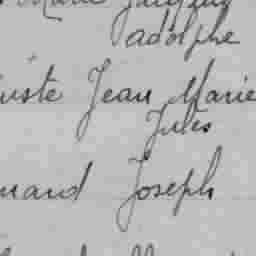 Marie
adolphe
uste Jean Marie
Jules
nand Joseph